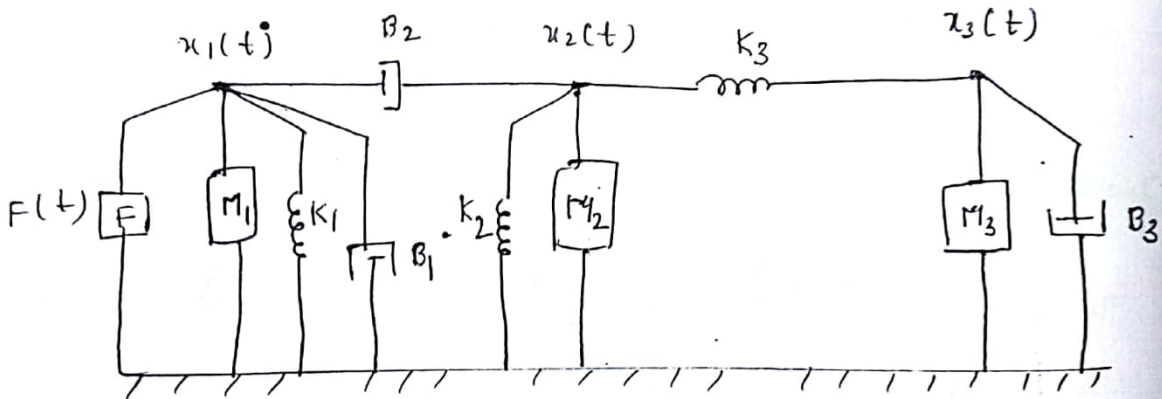 x₁(t) B₂ x₂(t) K₃ x₃(t)
F(t) F M₁ K₁ B₁ K₂ M₂ M₃ B₃